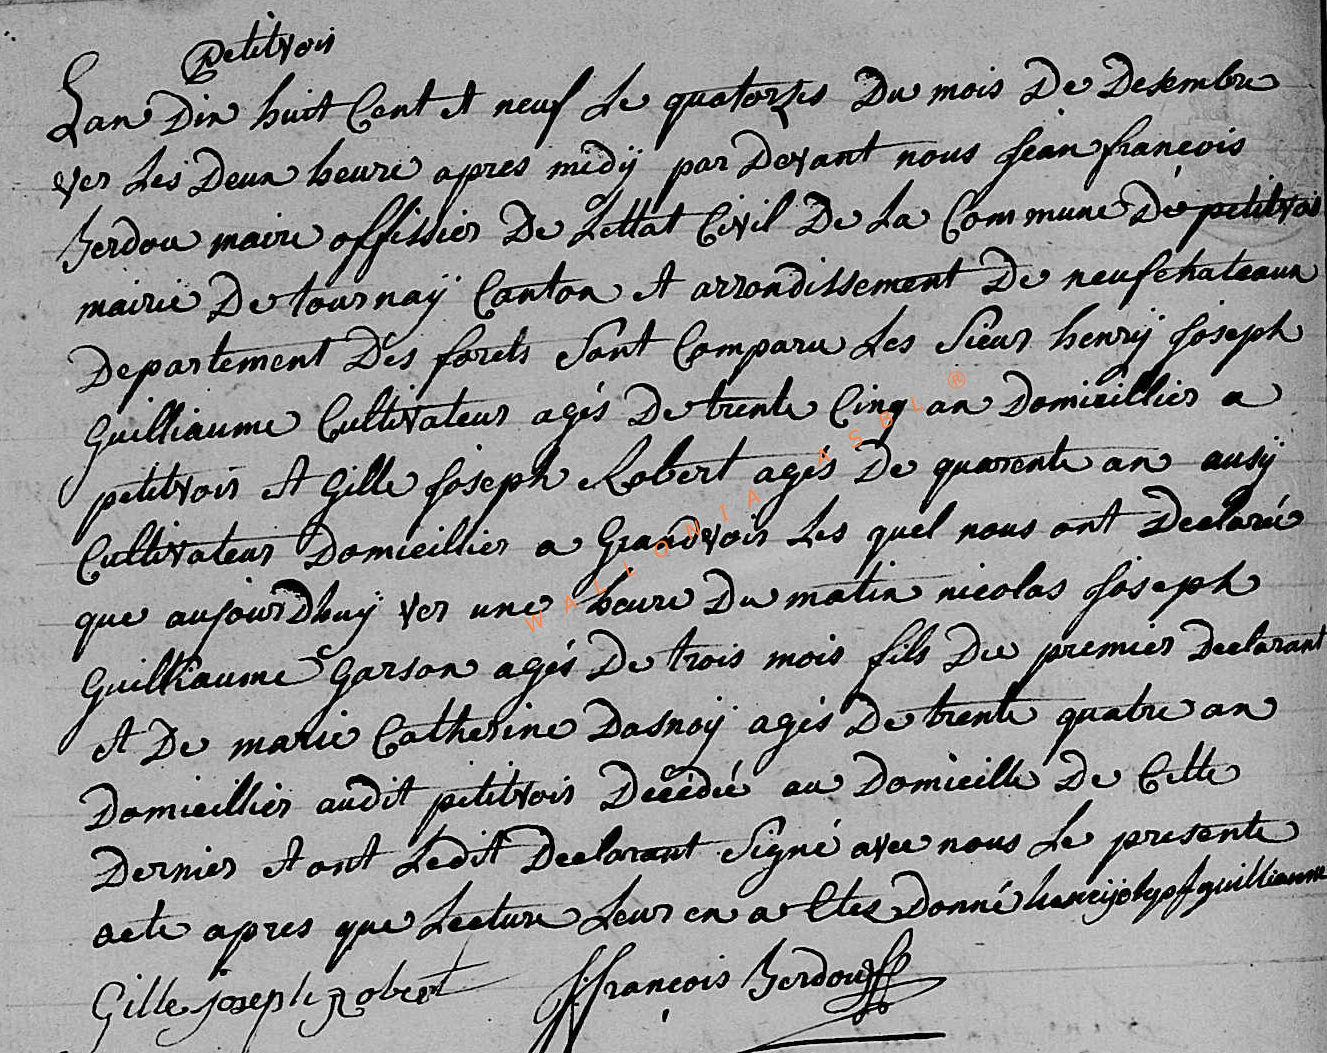 petitvois
Lan Dix huit Cent et neuf Le quatorzes Du mois De Desembre
ver Les Deux heure apres midÿ par Devant nous Jean francois
Herdou maire offissier De Lettat Civil De La Commune De petitvois
mairie De tournaÿ Canton et arrondissement De neufchateaux
Departement Des forets Sont Comparu Les Sieur henrÿ Joseph
Guilliaume Cultivateur agés De trente Cinq an Domicillier a
petitvois et Gille Joseph Robert agés De quarente an ausÿ
Cultivateur Domicillier a Grandvoir Les quel nous ont Declaré
que aujourDhuÿ ver une heure Du matin nicolas Joseph
Guilliaume Garson agés De trois mois fils Du premier Declarant
et De marie Catherine Dasnoÿ agés De trente quatre an
Domicillier audit petitvois Décédé au Domicille De Cette
Dernier et ont Ledit Declarant Signé avec nous Le presente
acte apres que Lecture Leur en a Etez Donné henrij josepf guilliaume
Gille joseph Robert J françois Herdou
WALLONIA ASBL ®